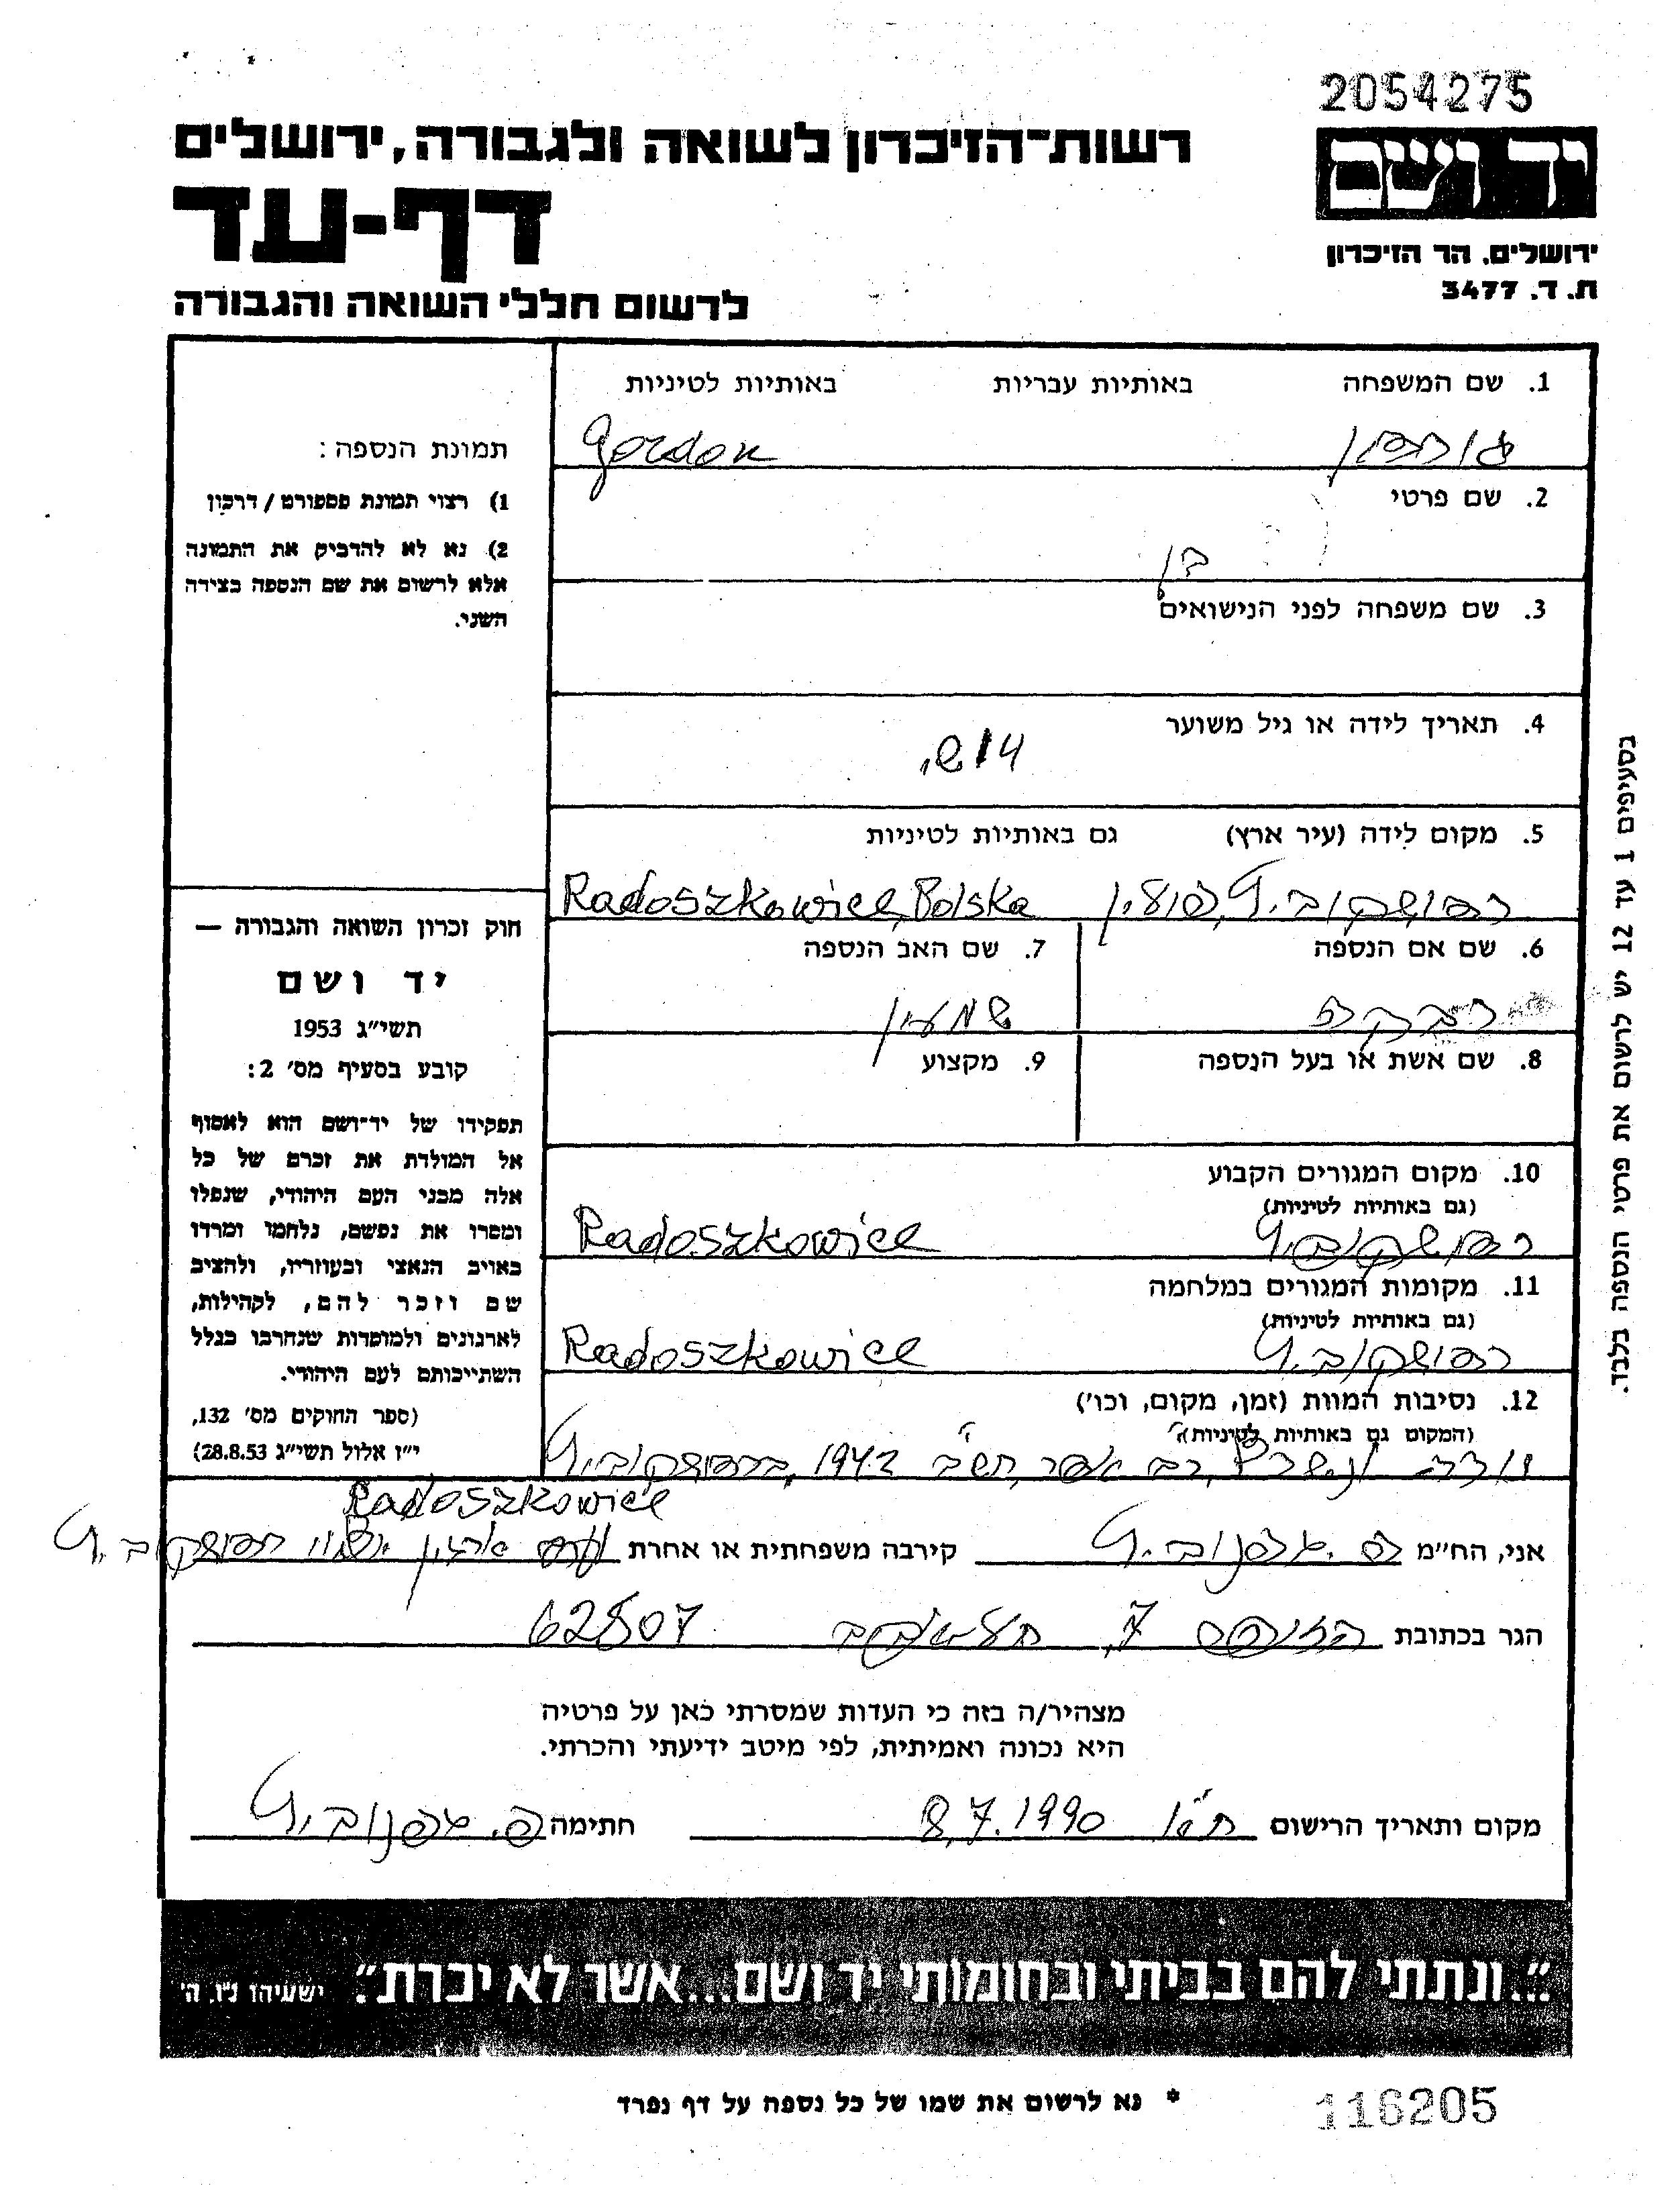 2054275
יד ושם
ירושלים, הר הזיכרון
ת. ד. 3477
רשות־הזיכרון לשואה ולגבורה, ירושלים
דף-עד
לרשום חללי השואה והגבורה
1. שם המשפחה באותיות עבריות באותיות לטיניות
גורדון Gordon
2. שם פרטי
בן
3. שם משפחה לפני הנישואים
4. תאריך לידה או גיל משוער
14 ש'
5. מקום לידה (עיר ארץ) גם באותיות לטיניות
רדושקוביץ, פולין Radoszkowice, Polska
6. שם אם הנספה
רבקה
7. שם האב הנספה
שמעון
8. שם אשת או בעל הנספה
9. מקצוע
10. מקום המגורים הקבוע
(גם באותיות לטיניות)
רדושקוביץ Radoszkowice
11. מקומות המגורים במלחמה
(גם באותיות לטיניות)
רדושקוביץ Radoszkowice
12. נסיבות המוות (זמן, מקום, וכו')
(המקום גם באותיות לטיניות)
1942, ברדושקוביץ
Radoszkowice
תמונת הנספה:
1) רצוי תמונת פספורט / דרכון
2) נא לא להדביק את התמונה
אלא לרשום את שם הנספה בצידה
השני.
חוק זכרון השואה והגבורה —
יד ושם
תשי״ג 1953
קובע בסעיף מס׳ 2:
תפקידו של יד־ושם הוא לאסוף
אל המולדת את זכרם של כל
אלה מבני העם היהודי, שנפלו
ומסרו את נפשם, נלחמו ומרדו
באויב הנאצי ובעוזריו, ולהציב
שם וזכר להם, לקהילות,
לארגונים ולמוסדות שנחרבו בגלל
השתייכותם לעם היהודי.
(ספר החוקים מס׳ 132,
י״ז אלול תשי״ג 28.8.53)
בסעיפים 1 עד 12 יש לרשום את פרטי הנספה בלבד.
אני, הח״מ קירבה משפחתית או אחרת רדושקוביץ
הגר בכתובת 7, תל אביב 62507
מצהיר/ה בזה כי העדות שמסרתי כאן על פרטיה
היא נכונה ואמיתית, לפי מיטב ידיעתי והכרתי.
מקום ותאריך הרישום ת״א 8.7.1990 חתימה
״...ונתתי להם בביתי ובחומותי יד ושם...אשר לא יכרת״. ישעיהו נ״ו, ה׳
* נא לרשום את שמו של כל נספה על דף נפרד
116205